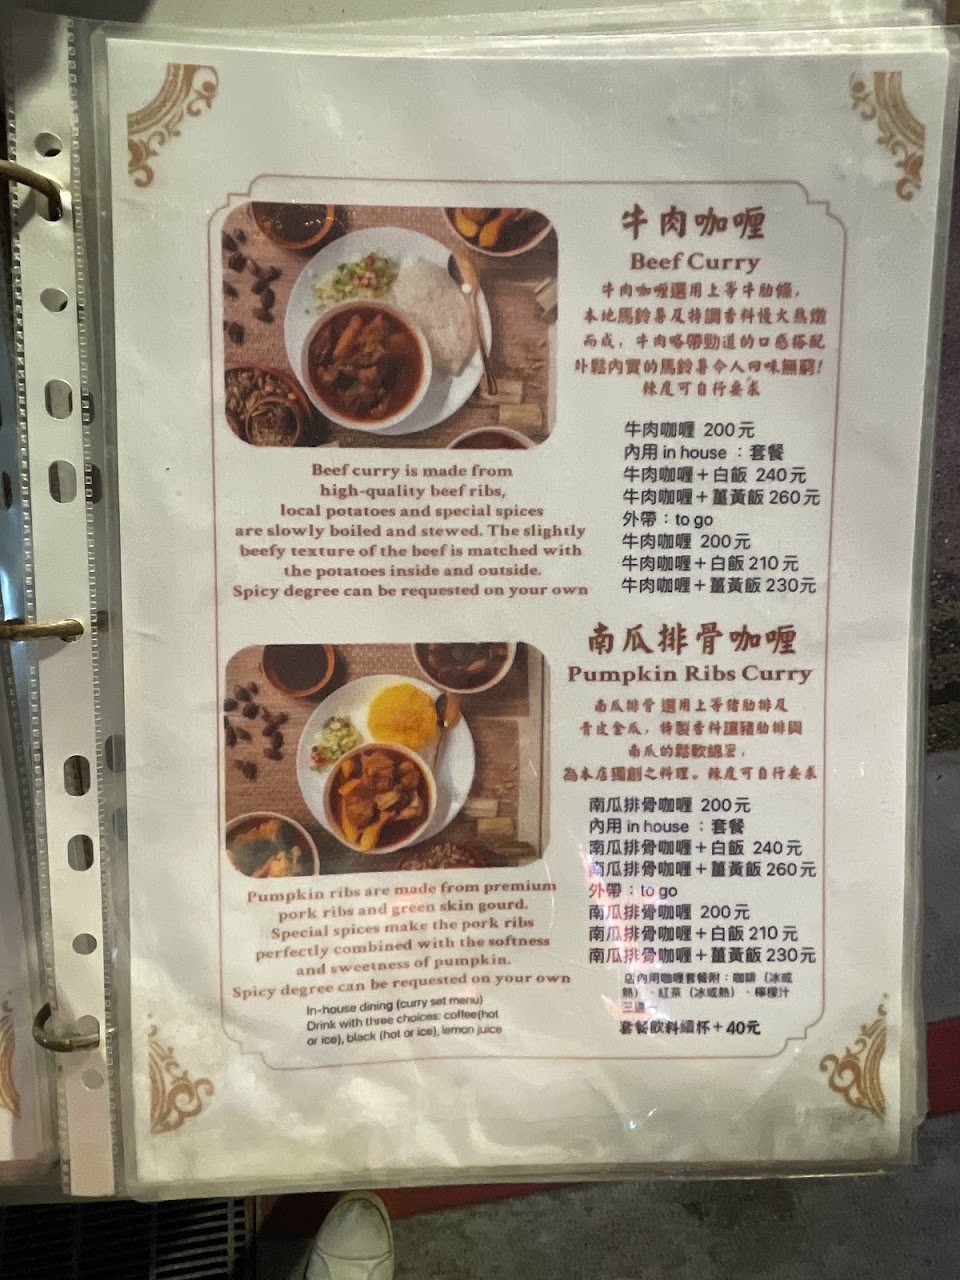 牛肉咖喱
Beef Curry
牛肉咖喱選用上等牛肋條，
本地馬鈴薯及特調香料慢火熬燉
而成，牛肉略帶勁道的口感搭配
外鬆內實的馬鈴薯令人回味無窮!
辣度可自行要求
牛肉咖喱 200元
內用 in house ：套餐
牛肉咖喱＋白飯 240元
牛肉咖喱＋薑黃飯 260元
外帶：to go
牛肉咖喱 200元
牛肉咖喱＋白飯 210元
牛肉咖喱＋薑黃飯 230元
Beef curry is made from
high-quality beef ribs,
local potatoes and special spices
are slowly boiled and stewed. The slightly
beefy texture of the beef is matched with
the potatoes inside and outside.
Spicy degree can be requested on your own
南瓜排骨咖喱
Pumpkin Ribs Curry
南瓜排骨 選用上等豬肋排及
青皮金瓜，特製香料讓豬肋排與
南瓜的鬆軟綿密，
為本店獨創之料理。辣度可自行要求
南瓜排骨咖喱 200元
內用 in house ：套餐
南瓜排骨咖喱＋白飯 240元
南瓜排骨咖喱＋薑黃飯 260元
外帶：to go
南瓜排骨咖喱 200元
南瓜排骨咖喱＋白飯 210元
南瓜排骨咖喱＋薑黃飯 230元
店內用咖喱套餐附：咖啡（冰或
熱）、紅茶（冰或熱）、檸檬汁
三選
套餐飲料續杯＋40元
Pumpkin ribs are made from premium
pork ribs and green skin gourd.
Special spices make the pork ribs
perfectly combined with the softness
and sweetness of pumpkin.
Spicy degree can be requested on your own
In-house dining (curry set menu)
Drink with three choices: coffee(hot
or ice), black (hot or ice), lemon juice